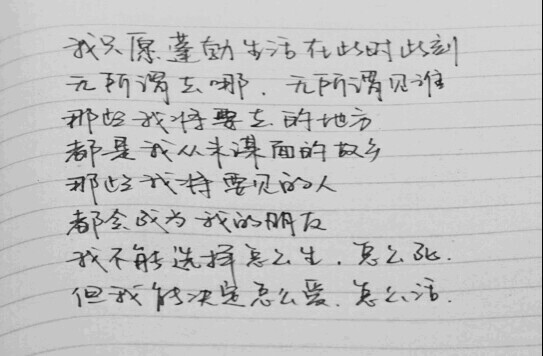 我只愿蓬勃生活在此时此刻
无所谓去哪，无所谓见谁
那些我将要去的地方
都是我从未谋面的故乡
那些我将要见的人
都会成为我的朋友
我不能选择怎么生，怎么死.
但我能决定怎么爱、怎么活.